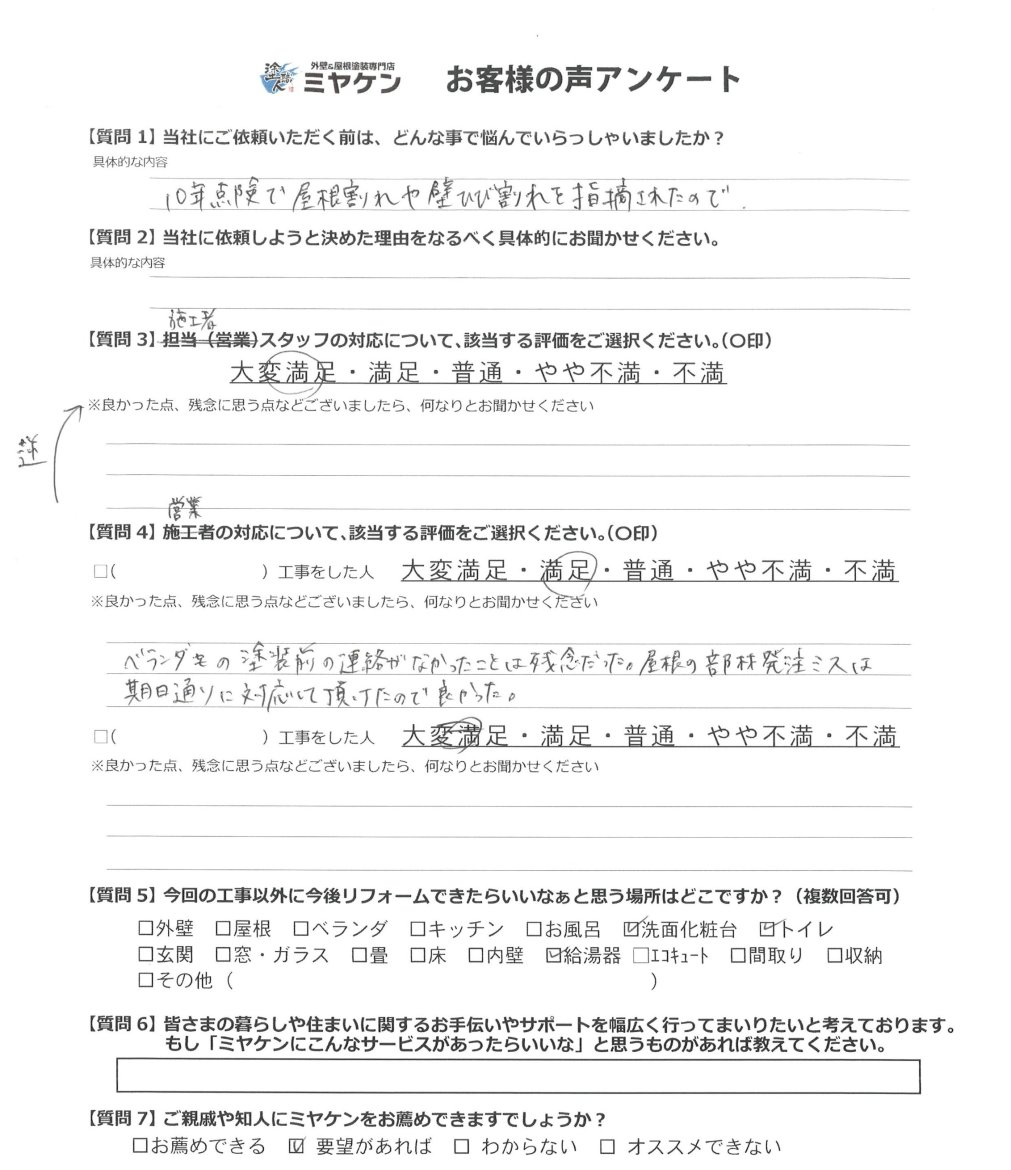 塗職人
外壁&屋根塗装専門店
ミヤケン お客様の声アンケート
【質問 1】当社にご依頼いただく前は、どんな事で悩んでいらっしゃいましたか？
具体的な内容
10年点険で屋根割れや壁ひび割れを指摘されたので.
【質問 2】当社に依頼しようと決めた理由をなるべく具体的にお聞かせください。
具体的な内容
施工者
【質問 3】担当（営業）スタッフの対応について、該当する評価をご選択ください。（〇印）
大変満足・満足・普通・やや不満・不満
※良かった点、残念に思う点などございましたら、何なりとお聞かせください
逆
営業
【質問 4】施工者の対応について、該当する評価をご選択ください。（〇印）
□（ ）工事をした人 大変満足・満足・普通・やや不満・不満
※良かった点、残念に思う点などございましたら、何なりとお聞かせください
ベランダの塗装前の連絡がなかったことは残念だった。屋根の部材発注ミスは
期日通りに対応して頂けたので良かった。
□（ ）工事をした人 大変満足・満足・普通・やや不満・不満
※良かった点、残念に思う点などございましたら、何なりとお聞かせください
【質問 5】今回の工事以外に今後リフォームできたらいいなぁと思う場所はどこですか？（複数回答可）
□外壁 □屋根 □ベランダ □キッチン □お風呂 ☑洗面化粧台 ☑トイレ
□玄関 □窓・ガラス □畳 □床 □内壁 ☑給湯器 □エコキュート □間取り □収納
□その他（ ）
【質問 6】皆さまの暮らしや住まいに関するお手伝いやサポートを幅広く行ってまいりたいと考えております。
もし「ミヤケンにこんなサービスがあったらいいな」と思うものがあれば教えてください。
【質問 7】ご親戚や知人にミヤケンをお薦めできますでしょうか？
□お薦めできる ☑ 要望があれば □ わからない □ オススメできない